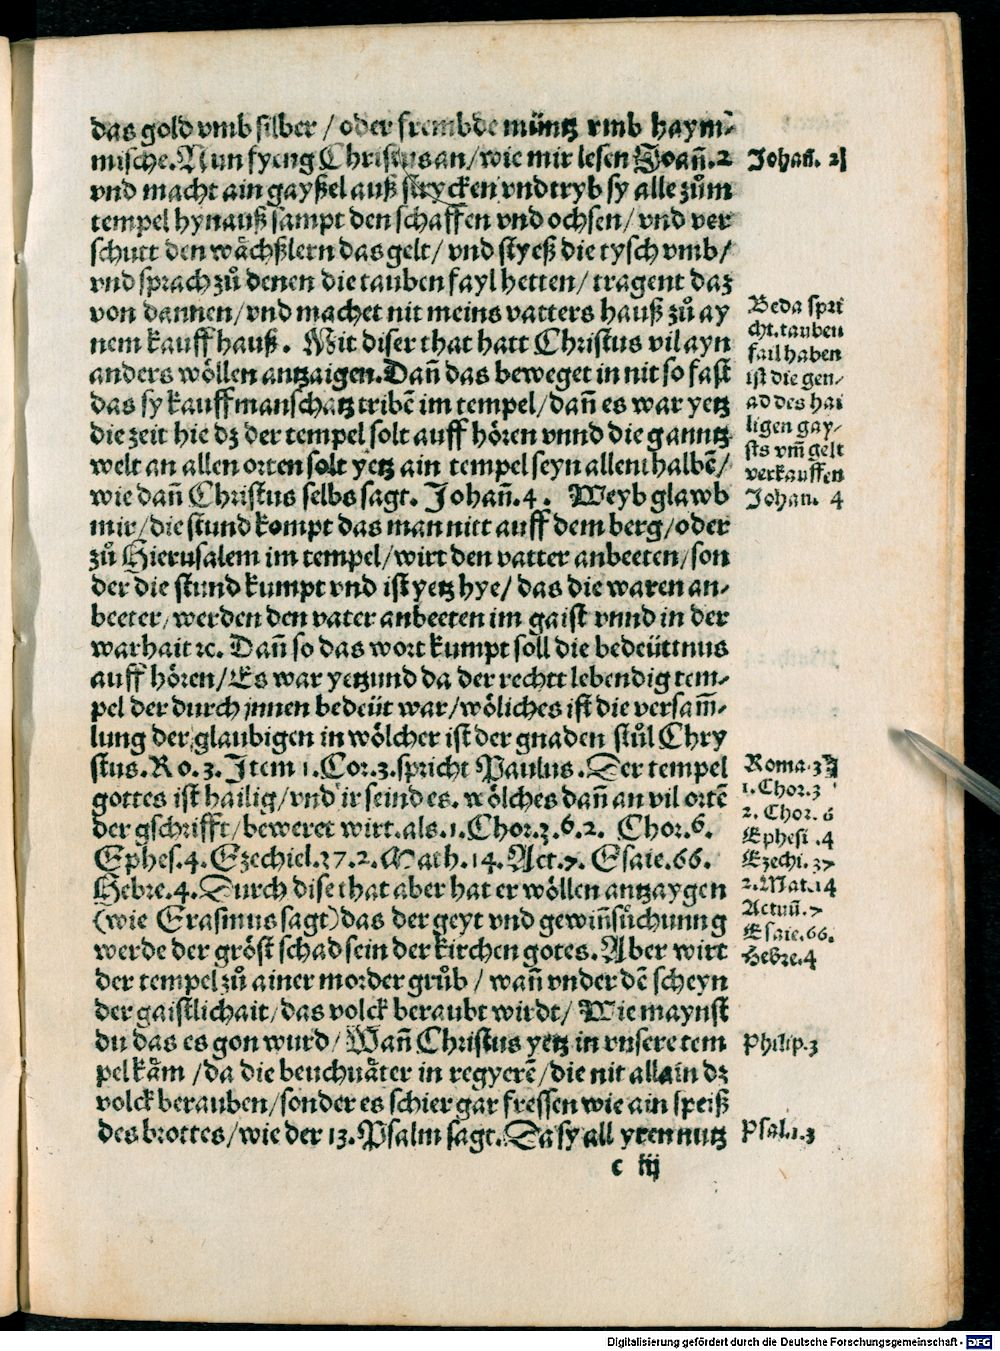 das gold vmb silber / oder frembde müntz vmb haym̃-
mische. Nun fyeng Christus an / wie mir lesen Joañ. 2
vnd macht ain gayßel auß strycken vnd tryb sy alle zům
tempel hynauß sampt den schaffen vnd ochsen / vnd ver
schutt den wächßlern das gelt / vnd styeß die tysch vmb /
vnd sprach zů denen die tauben fayl hetten / tragent daz
von dannen / vnd machet nit meins vatters hauß zů ay
nem kauff hauß. Mit diser that hatt Christus vil ayn
anders wöllen antzaigen. Dañ das beweget in nit so fast
das sy kauffmanschatz tribẽ im tempel / dañ es war yetz
die zeit hie dz der tempel solt auff hören vnnd die ganntz
welt an allen orten solt yetz ain tempel seyn allenthalbẽ /
wie dañ Christus selbs sagt. Johañ. 4. Weyb glawb
mir / die stund kompt das man nitt auff dem berg / oder
zů Hierusalem im tempel / wirt den vatter anbeeten / son
der die stund kumpt vnd ist yetz hye / das die waren an-
beeter / werden den vater anbeeten im gaist vnnd in der
warhait ꝛc. Dañ so das wort kumpt soll die bedeüttnus
auff hören / Es war yetzund da der rechtt lebendig tem-
pel der durch jnnen bedeüt war / wöliches ist die versam̃-
lung der glaubigen in wölcher ist der gnaden stůl Chry
stus. Ro. 3. Item 1. Cor. 3. spricht Paulus. Der tempel
gottes ist hailig / vnd ir seind es. wölches dañ an vil ortẽ
der gschrifft / beweret wirt. als. 1. Chor. 3. 6. 2. Chor. 6.
Ephes. 4. Ezechiel. 37. 2. Math. 14. Act. 7. Esaie. 66.
Hebre. 4. Durch dise that aber hat er wöllen antzaygen
(wie Erasmus sagt) das der geyt vnd gewiñsůchunng
werde der gröst schad sein der kirchen gotes. Aber wirt
der tempel zů ainer morder grůb / wañ vnder dẽ scheyn
der gaistlichait / das volck beraubt wirdt / Wie maynst
du das es gon wurd / Wañ Christus yetz in vnsere tem
pel käm / da die beuchuäter in regyerẽ / die nit allain dz
volck berauben / sonder es schier gar fressen wie ain speiß
des brottes / wie der 13. Psalm sagt. Da sy all yren nutz
c iij
Johañ. 2
Beda spri
cht. tauben
fail haben
ist die gen-
ad des hai
ligen gay-
sts vm̃ gelt
verkauffen
Johan. 4
Roma. 3
1. Chor. 3
2. Chor. 6
Ephesi. 4
Ezechi. 37
2. Mat. 14
Actuũ. 7
Esaie. 66.
Hebre. 4
Philip. 3
Psal. 1.3
Digitalisierung gefördert durch die Deutsche Forschungsgemeinschaft - DFG